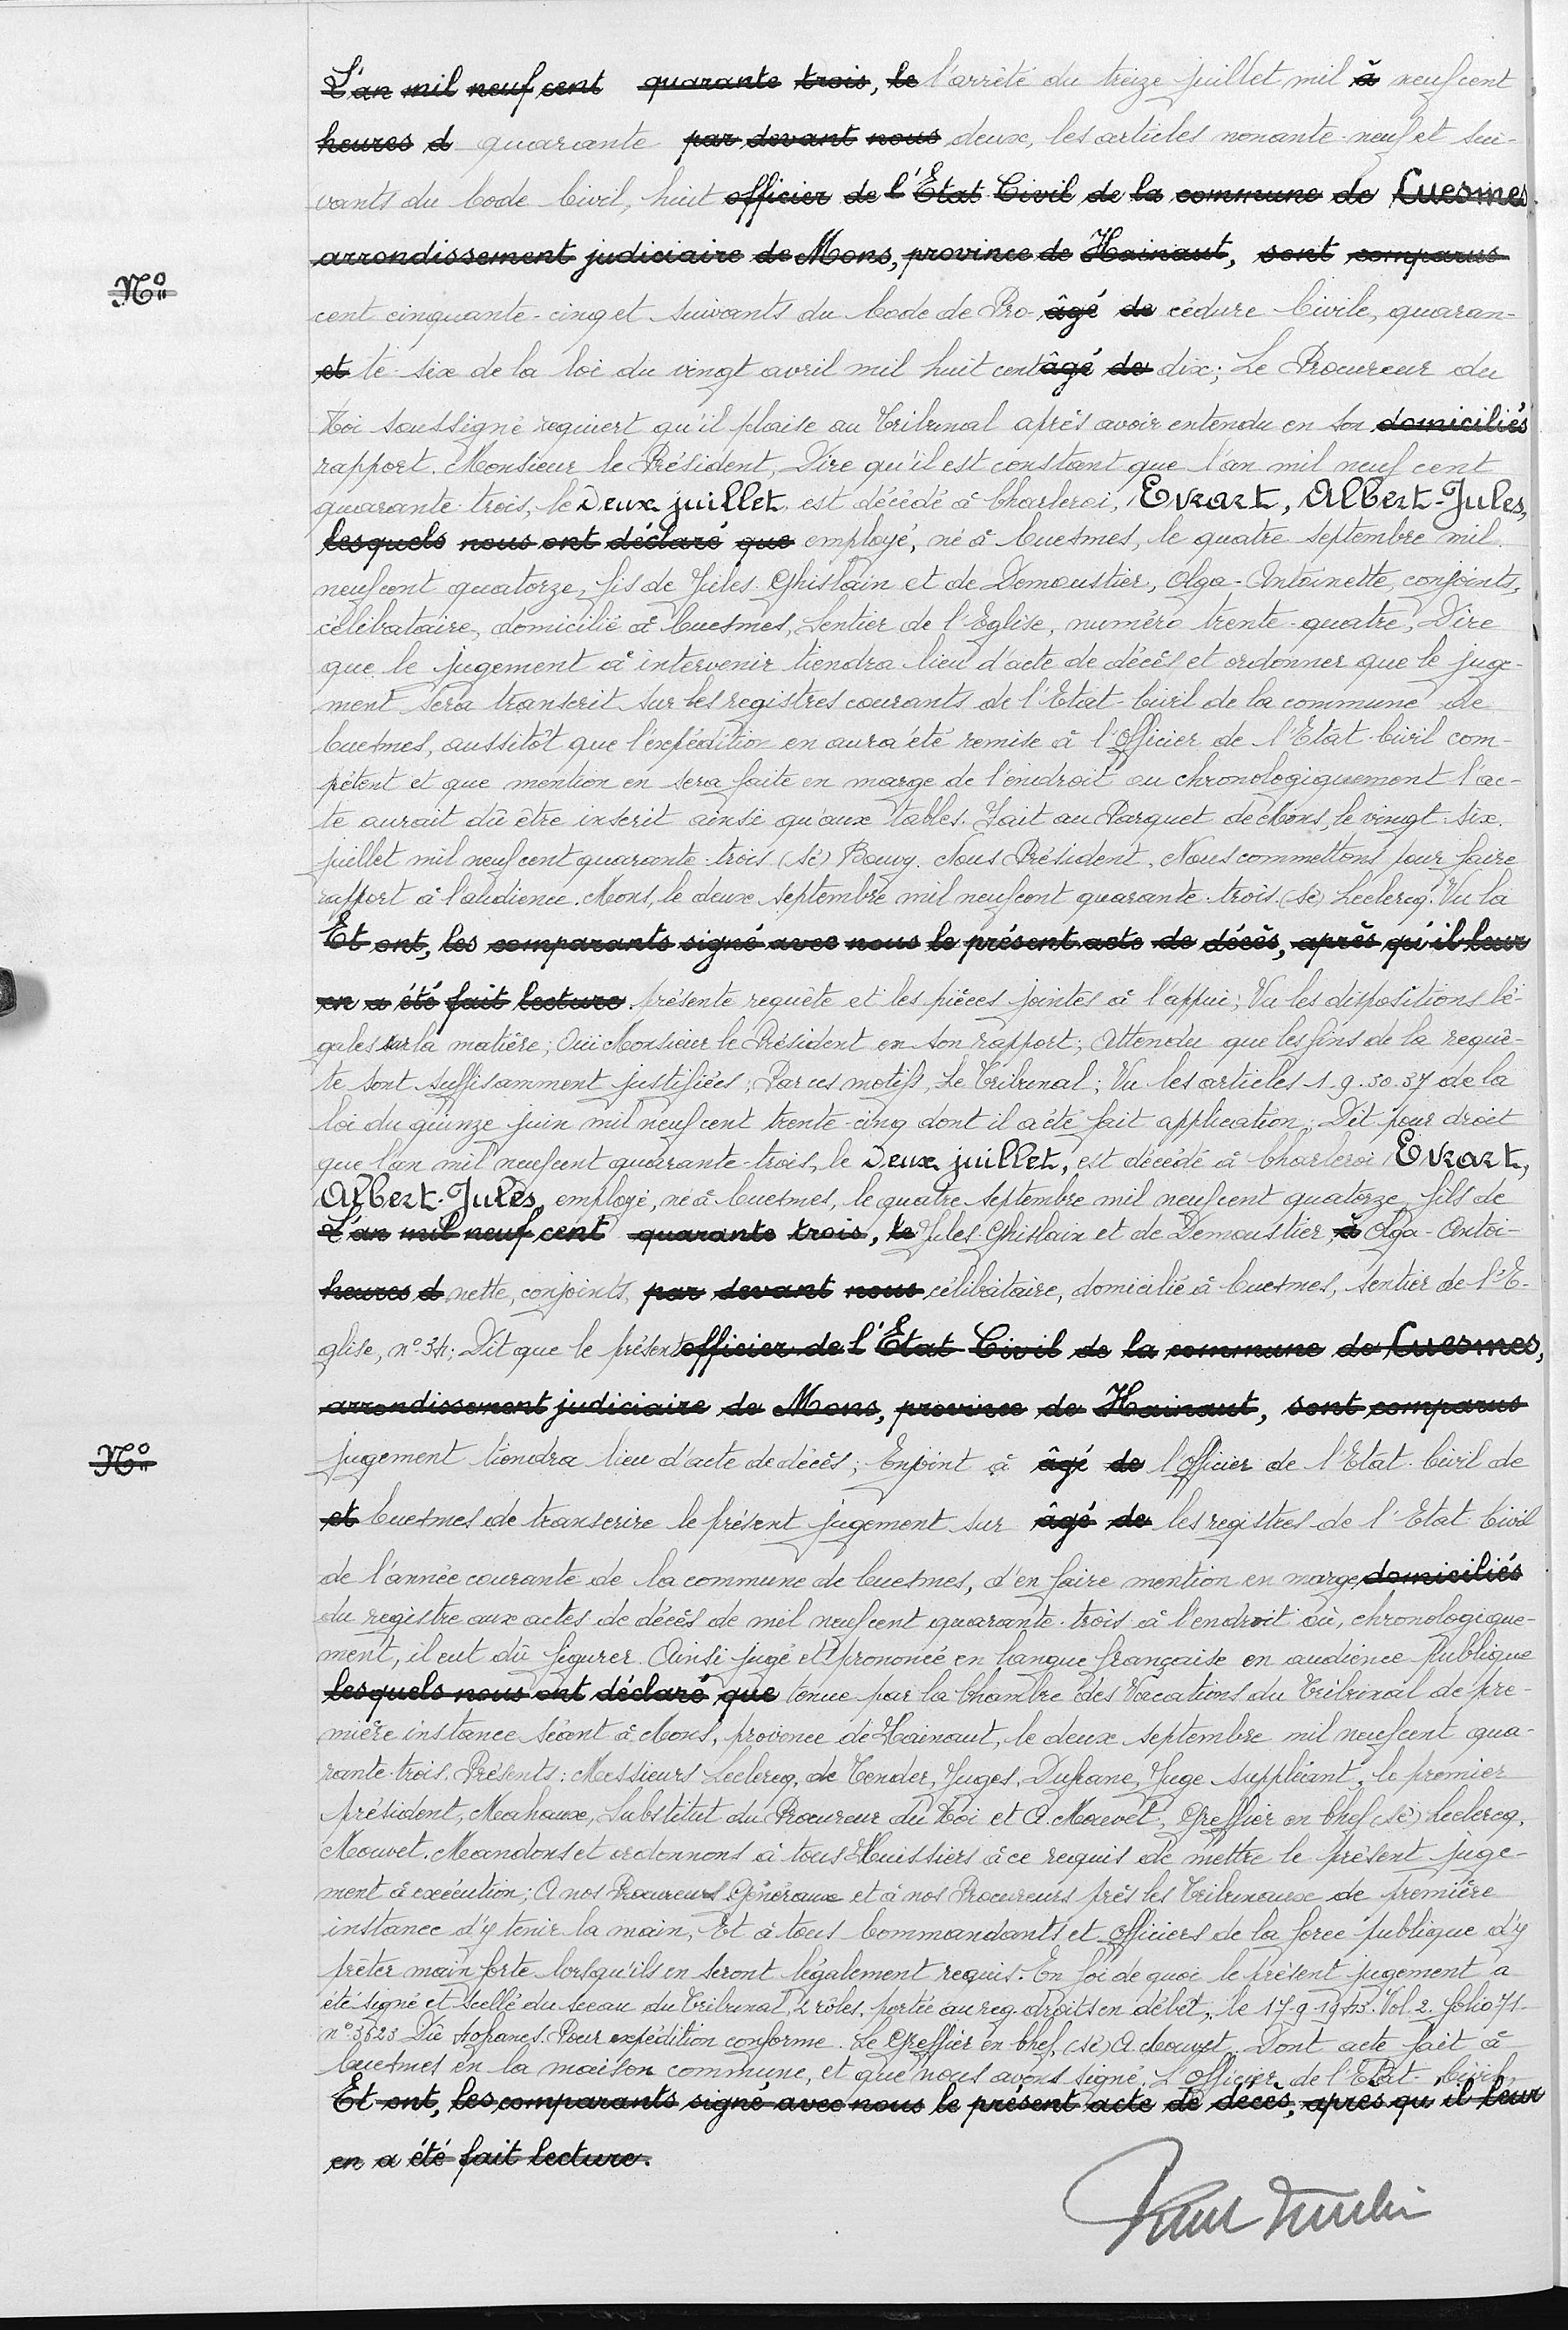 L'an mil neuf cent quarante trois, le l'arrêté du treize juillet mil à neuf cent
heures d quarante par devant nous deux, les articles nonante-neuf et sui-
vants du Code Civil, huit officier de l'Etat Civil de la commune de Cuesmes,
arrondissement judiciaire de Mons, province de Hainaut, sont comparus
N°
cent cinquante-cinq et suivants du Code de Pro- âgé de cédure Civile, quaran-
et te-six de la loi du vingt avril mil huit cent âgé de dix; Le Procureur du
Roi soussigné requiert qu'il plaise au Tribunal après avoir entendu en son domiciliés
rapport. Monsieur le Président, Dire qu'il est constant que l'an mil neuf cent
quarante-trois, le Deux juillet, est décédé à Charleroi, Evrart, Albert-Jules,
lesquels nous ont déclaré que employé, né à Cuesmes, le quatre septembre mil
neuf cent quatorze, fis de Jules-Ghislain et de Demoustier, Olga-Antoinette, conjoints,
célibataire, domicilié à Cuesmes, Sentier de l'Eglise, numéro trente-quatre, Dire
que le jugement à intervenir tiendra lieu d'acte de décès et ordonner que le juge-
ment sera transcrit sur les registres courants de l'Etat-Civil de la commune de
Cuesmes, aussitôt que l'expédition en aura été remise à l'Officier de l'Etat-Civil com-
pétent et que mention en sera faite en marge de l'endroit ou chronologiquement l'ac-
te aurait dû être inscrit ainsi qu'aux tables. Fait au Parquet de Mons, le vingt-six
juillet mil neuf cent quarante-trois (sé) Bouvy. Nous Président, Nous commettons pour faire
rapport à l'audience. Mons, le deux septembre mil neuf cent quarante-trois. (sé) Leclercq. Vu la
Et ont, les comparants signé avec nous le présent acte de décès, après qu'il leur
en a été fait lecture. présente requête et les pièces jointes à l'appui; Vu les dispositions lé-
gales sur la matière; Ouï Monsieur le Président en son rapport; Attendu que les fins de la requê-
te sont suffisamment justifiées; Par ces motifs, Le Tribunal; Vu les articles 1. 9. 30. 37 de la
loi du quinze juin mil neuf cent trente-cinq dont il a été fait application, Dit pour droit
que l'an mil neuf cent quarante-trois, le Deux juillet, est décédé à Charleroi Evrart,
Albert-Jules, employé, né à Cuesmes, le quatre septembre mil neuf cent quatorze, fils de
L'an mil neuf cent quarante trois, le Jules-Ghislain et de Demoustier, à Olga-Antoi-
heures d nette, conjoints, par devant nous célibataire, domicilié à Cuesmes, sentier de l'E-
glise, n° 34; Dit que le présent officier de l'Etat Civil de la commune de Cuesmes,
arrondissement judiciaire de Mons, province de Hainaut, sont comparus
N°
jugement tiendra lieu d'acte de décès; Enjoint à âgé de l'Officier de l'Etat-Civil de
et Cuesmes de transcrire le présent jugement sur âgé de les registres de l'Etat-Civil
de l'année courante de la commune de Cuesmes, d'en faire mention en marge domiciliés
du registre aux actes de décès de mil neuf cent quarante-trois à l'endroit où, chronologique-
ment, il eut dû figurer. Ainsi jugé et prononcé en langue française en audience publique
lesquels nous ont déclaré que tenue par la Chambre des Vacations du Tribunal de pre-
mière instance séant à Mons, province de Hainaut, le deux septembre mil neuf cent qua-
rante-trois. Présents: Messieurs Leclercq, de Tender, Juges, Dufrane, Juge suppléant, le premier
président, Mahaux, Substitut du Procureur du Roi et A. Mouvet, Greffier en Chef (sé) Leclercq,
Mouvet. Mandons et ordonnons à tous Huissiers à ce requis de mettre le présent juge-
ment à exécution; A nos Procureurs Généraux et à nos Procureurs près les Tribunaux de première
instance d'y tenir la main, Et à tous Commandants et officiers de la force publique d'y
prêter main forte lorsqu'ils en seront légalement requis. En foi de quoi le présent jugement a
été signé et scellé du sceau du Tribunal, 2 rôles, portée au reg. droits en débet, le 17-9-1943. Vol. 2. folio 71
n° 3623 Dû 40 francs. Pour expédition conforme. Le Greffier en Chef, (sé) A. Mouvet. Dont acte fait à
Cuesmes en la maison commune, et que nous avons signé. L'Officier de l'Etat-Civil,
Et ont, les comparants signé avec nous le présent acte de décès, après qu'il leur
en a été fait lecture.